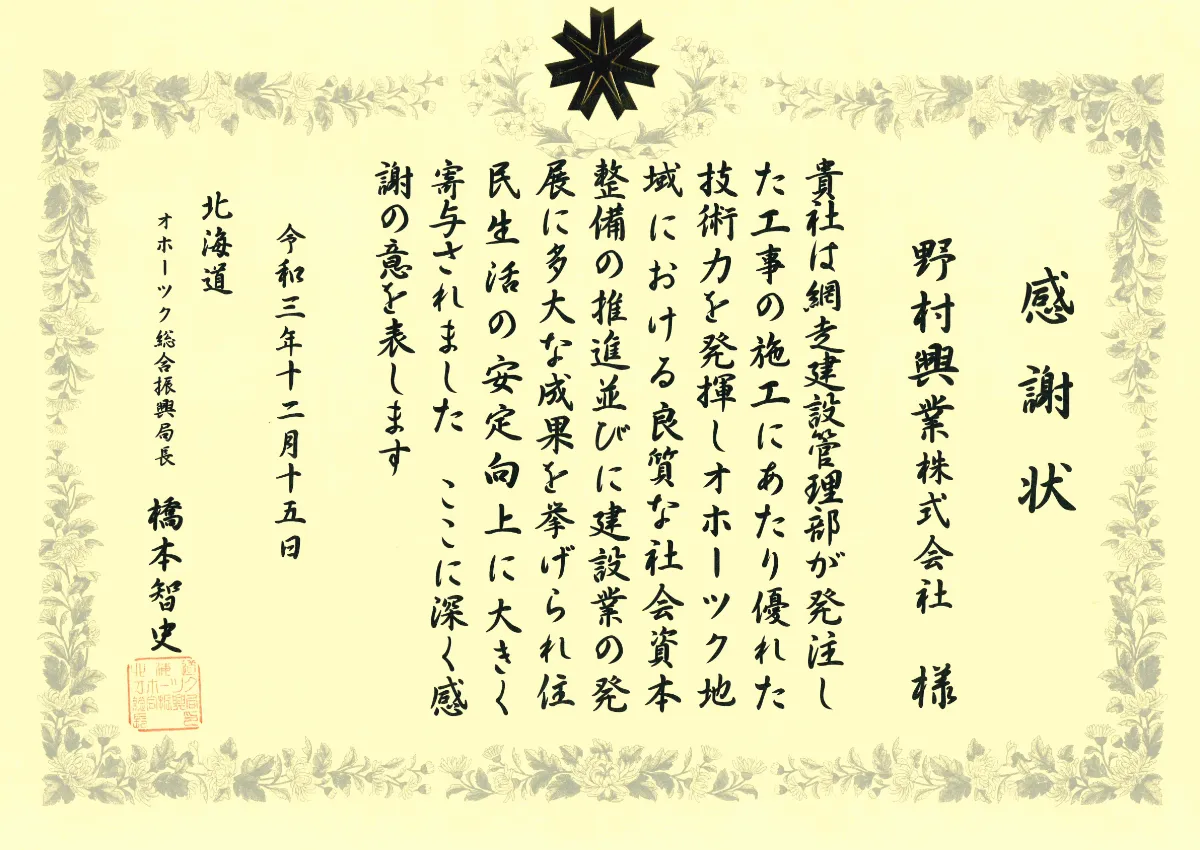 感謝状
野村興業株式会社 様
貴社は網走建設管理部が発注し
た工事の施工にあたり優れた
技術力を発揮しオホーツク地
域における良質な社会資本
整備の推進並びに建設業の発
展に多大な成果を挙げられ住
民生活の安定向上に大きく
寄与されました ここに深く感
謝の意を表します
令和三年十二月十五日
北海道
オホーツク総合振興局長 橋本智史